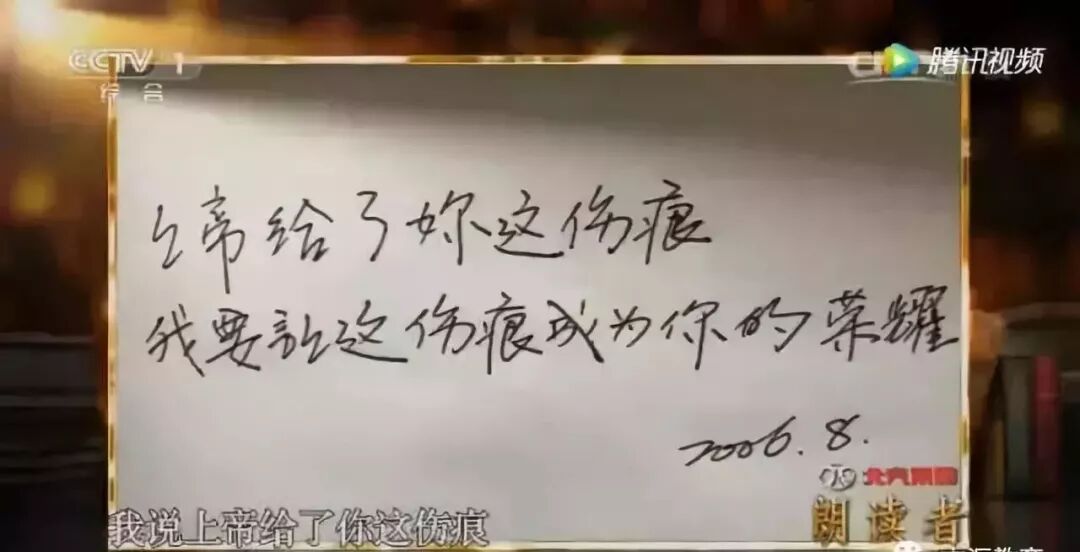 CCTV 1
综合
腾讯视频
上帝给了妳这伤痕
我要让这伤痕成为你的荣耀
2006.8.
北汽集团
朗读者
我说上帝给了你这伤痕